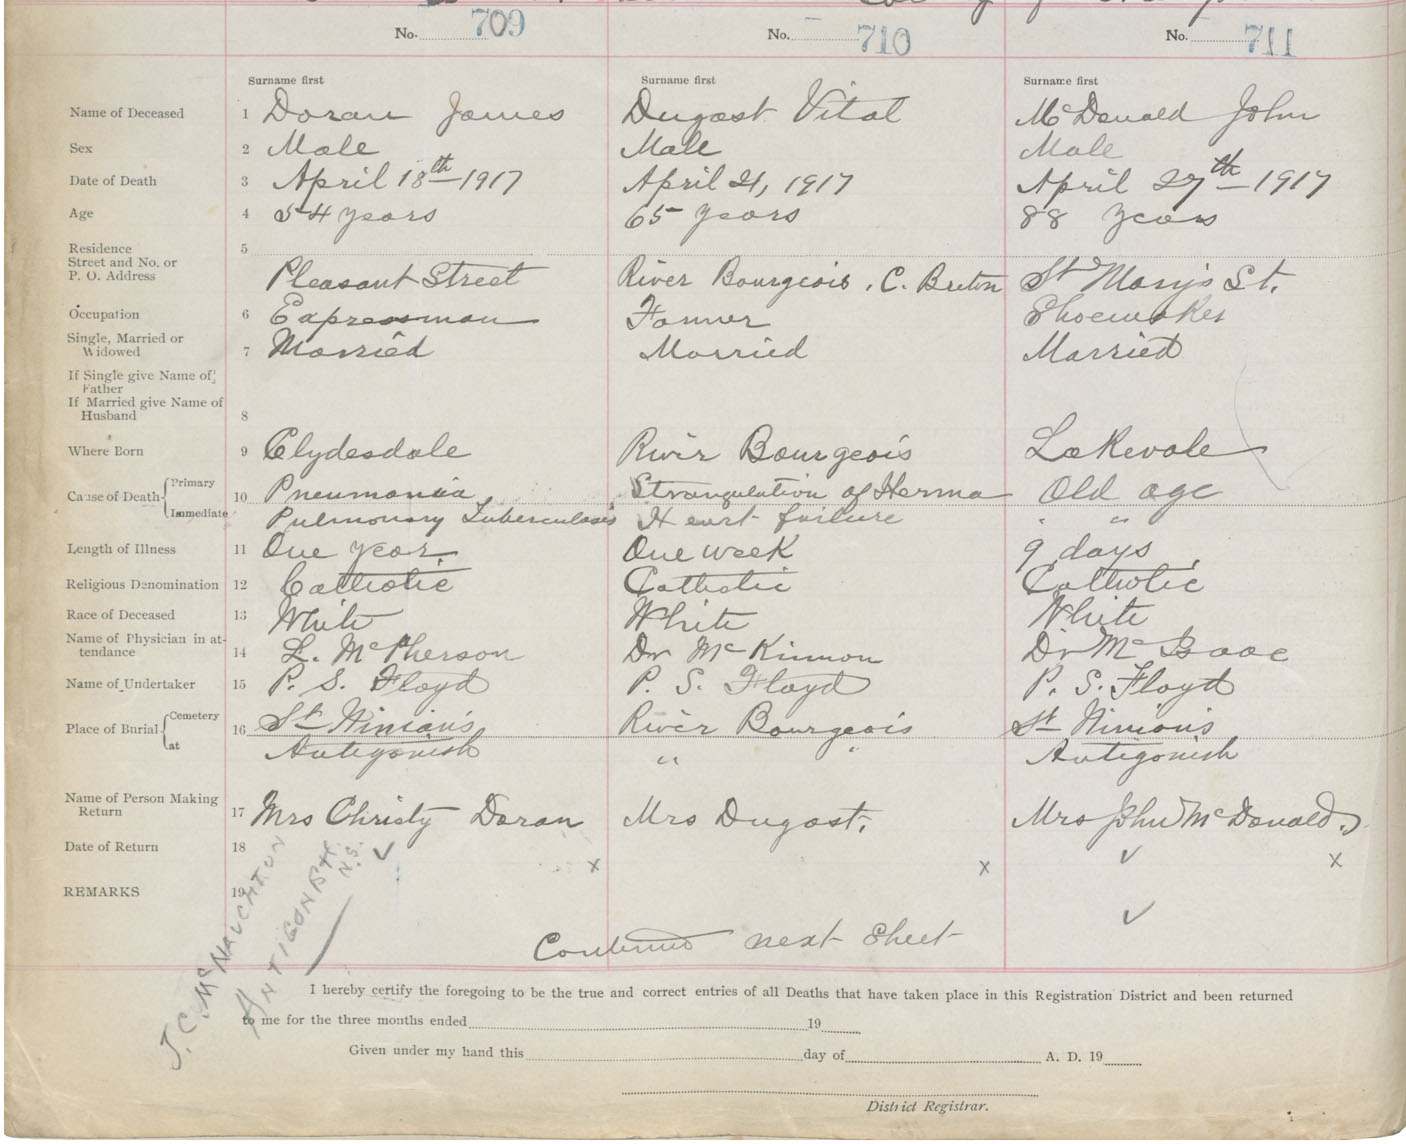 No. 709 No. 710 No. 711
Surname first Surname first Surname first
Name of Deceased 1 Doran James Dugast Vital McDonald John
Sex 2 Male Male Male
Date of Death 3 April 18th 1917 April 21, 1917 April 27th 1917
Age 4 54 years 65 years 88 years
Residence 5
Street and No. or
P. O. Address Pleasant Street River Bourgeois, C. Breton St Mary's St.
Occupation 6 Expressman Farmer Shoemaker
Single, Married or
Widowed 7 Married Married Married
If Single give Name of
Father
If Married give Name of
Husband 8
Where Born 9 Clydesdale River Bourgeois Lakevale
Cause of Death Primary 10 Pneumonia Strangulation of Herma Old age
Immediate Pulmonary Tuberculosis Heart failure " "
Length of Illness 11 One year One week 9 days
Religious Denomination 12 Catholic Catholic Catholic
Race of Deceased 13 White White White
Name of Physician in at-
tendance 14 L. McPherson Dr McKinnon Dr McIsaac
Name of Undertaker 15 P. S. Floyd P. S. Floyd P. S. Floyd
Place of Burial Cemetery 16 St Ninian's River Bourgeois St Ninian's
at Antigonish " " Antigonish
Name of Person Making
Return 17 Mrs Christy Doran Mrs Dugast. Mrs John McDonald.
Date of Return 18
REMARKS 19
J. C. McNAUGHTON
ANTIGONISH
N.S.
Continued next sheet
I hereby certify the foregoing to be the true and correct entries of all Deaths that have taken place in this Registration District and been returned
to me for the three months ended 19
Given under my hand this day of A. D. 19
District Registrar.